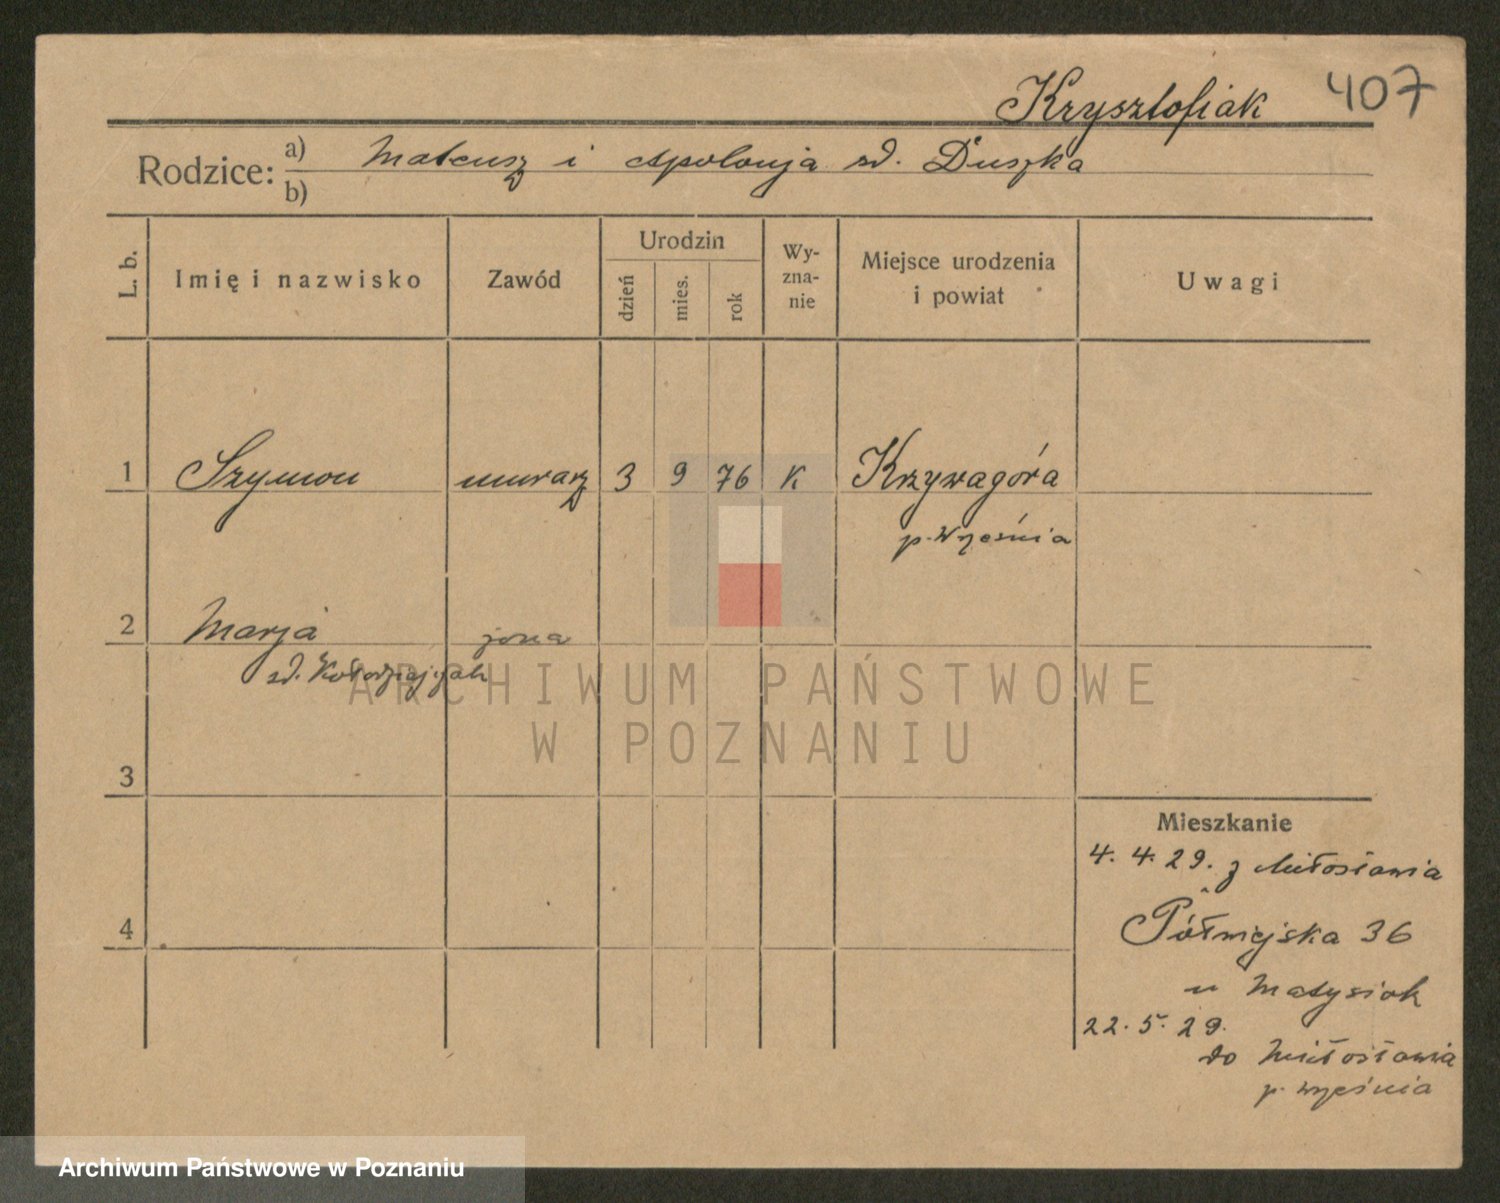 Krysztofiak 407
Rodzice: a) Mateusz i Apolonja zd. Duszka
b)
L. b. Imię i nazwisko Zawód Urodzin dzień mies. rok Wyznanie Miejsce urodzenia i powiat Uwagi
1 Szymon murarz 3 9 76 K Krzywagóra
p. Września
2 Marja żona
zd. Kołodziejczak
ARCHIWUM PAŃSTWOWE
W POZNANIU
3
4
Mieszkanie
4. 4. 29. z Miłosławia
Półwiejska 36
u Matysiak
22. 5. 29.
do Miłosławia
p. Września
Archiwum Państwowe w Poznaniu